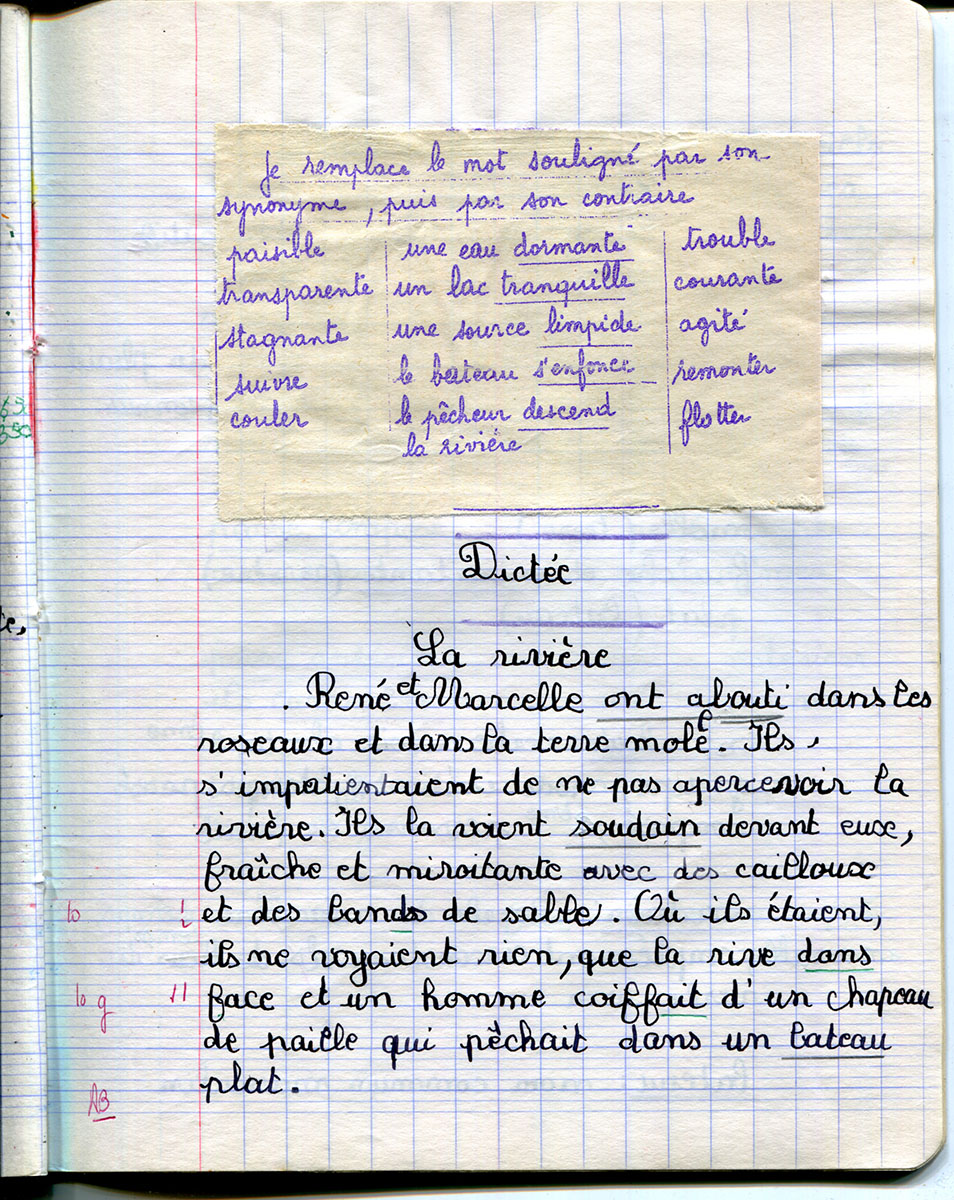 Je remplace le mot souligné par son
synonyme, puis par son contraire
paisible une eau dormante trouble
transparente un lac tranquille courante
stagnante une source limpide agité
suivre le bateau s'enfonce remonter
couler le pêcheur descend flotter
la rivière
Dictée
La rivière
. René et Marcelle ont abouti dans les
roseaux et dans la terre molle. Ils
s'impatientaient de ne pas apercevoir la
rivière. Ils la voient soudain devant eux,
fraîche et miroitante avec des cailloux
et des bands de sable. Où ils étaient,
ils ne voyaient rien, que la rive dans
face et un homme coiffait d'un chapeau
de paille qui pêchait dans un bateau
plat.
AB